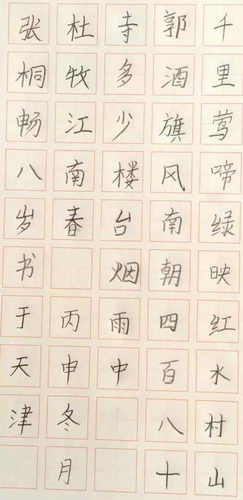 千里莺啼绿映红水村山
郭酒旗风南朝四百八十
寺多少楼台烟雨中
杜牧江南春 丙申冬月
张桐畅八岁书于天津